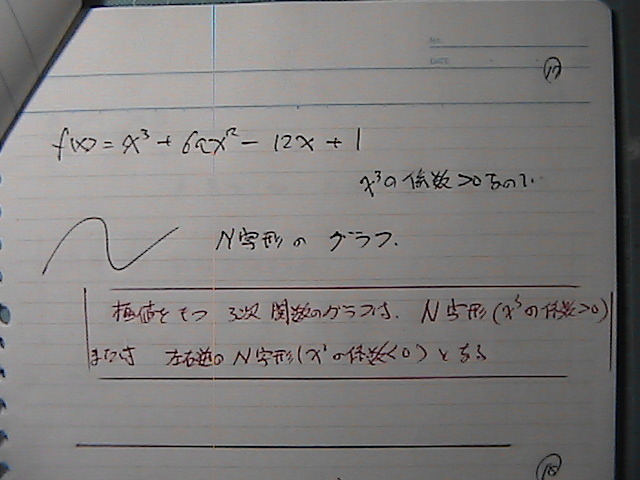 NO.
DATE
⑰
f(x) = x³ + 6ax² - 12x + 1
x³の係数>0なので.
N字形の グラフ.
極値をもつ 3次関数のグラフは. N字形(x³の係数>0)
または 左右逆のN字形(x³の係数<0)となる